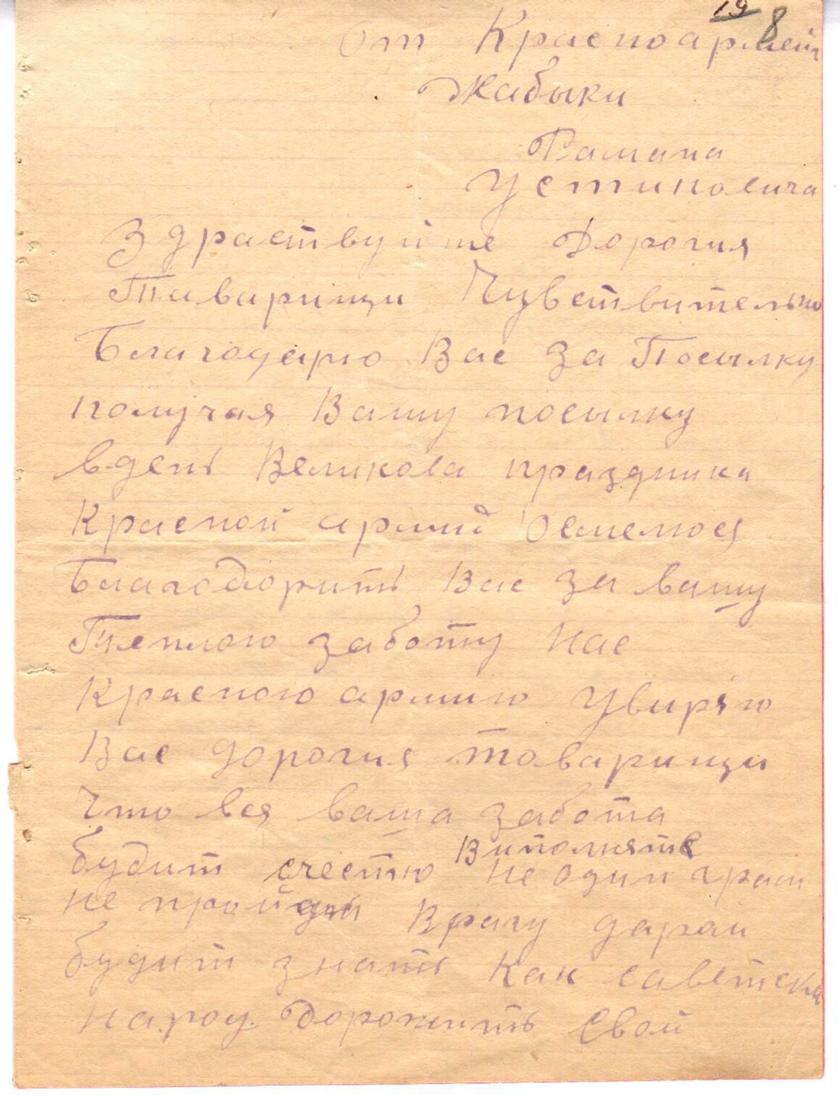 19 8
От Красноармей
Жабыки
Рамана
Устиновича
Здраствуйте Дорогия
Таварищи Чувствительно
Благодарю Вас за Посылку
получая Вашу посылку
вдень Великова праздника
Красной армий Осмелюся
Благодорить Вас за вашу
Теплою заботу Нас
Красною армию Увиряю
Вас дорогия товарищи
Что вся ваша забота
будит счестю Виполнять
не один грам
не пройдёт Врагу даром
будит знать Как саветски
народ дорожить Свой